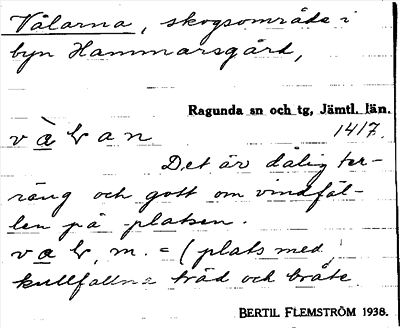 Vålarna, skogsområde i
byn Hammarsgård,
Ragunda sn och tg, Jämtl. län.
1417.
Det är dålig ter-
räng och gott om vindfäl-
len på platsen.
m. = (plats med
kullfallna träd och bråte
BERTIL FLEMSTRÖM 1938.